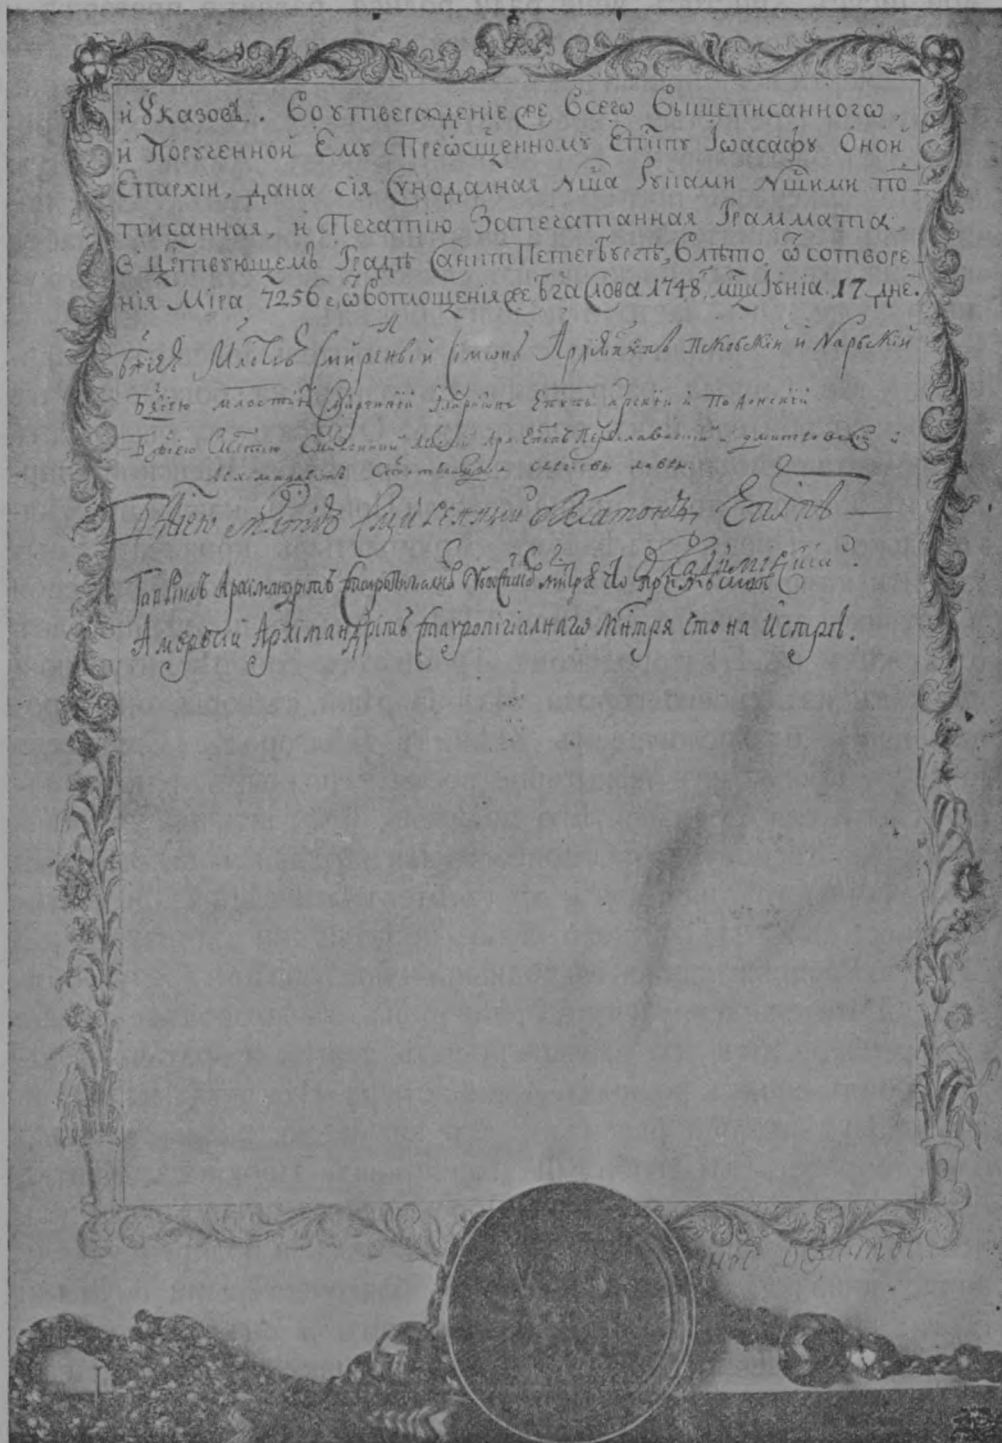 и Указовъ. Во утверждение же Всего Вышеписанногѡ,
и Порученной Ему Преѡсщенному Епⷭ҇пу Іѡасафу Оной
Епархіи, дана сія Сѵнодалная Нш҃а Руками Нш҃ими по
писанная, и Печатїю Запечатанная Грамматa,
Въ Црⷭ҇твующемъ Градѣ СанктПетербургѣ, Влѣто ѿ сотворе
нія Міра 7256 е, ѿ Воплощенія же Бг҃а Слова 1748, мцⷭ҇а Іунїа 17 дне.
Бж҃їею Млⷭ҇тїю Смиренный Сімонъ Архіепⷭ҇кпъ Псковскїй и Нарвскїй
Бж҃їею млостїю Смиренный Епⷭ҇пъ и Подонский
Бж҃їею Млⷭ҇тїю Смиренный Арсений Епⷭ҇пъ Переславский и дмитровский и
Архимандритъ Сергиевы лавры.
Бж҃їею мл҃тїю Смиренный Платонъ, Епⷭ҇пъ
Владимїрскїй.
Гавріилъ Архімандрїтъ Ставропигіалнⷢ҇ѡ Новоспⷭ҇скⷢ҇ѡ мнⷭ҇тря
Амвросїй Архїмандрїтъ ставропігіалнагѡ Мнⷭ҇тря что на Истрѣ.